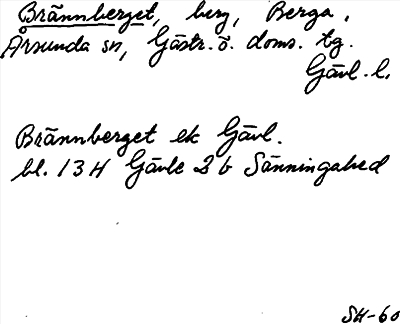 Brännberget, berg, Berga,
Årsunda sn, Gästr. ö. doms. tg.
Gävl. l.
Brännberget ek Gävl.
bl. 13H Gävle 2b Sänningahed
SH-60